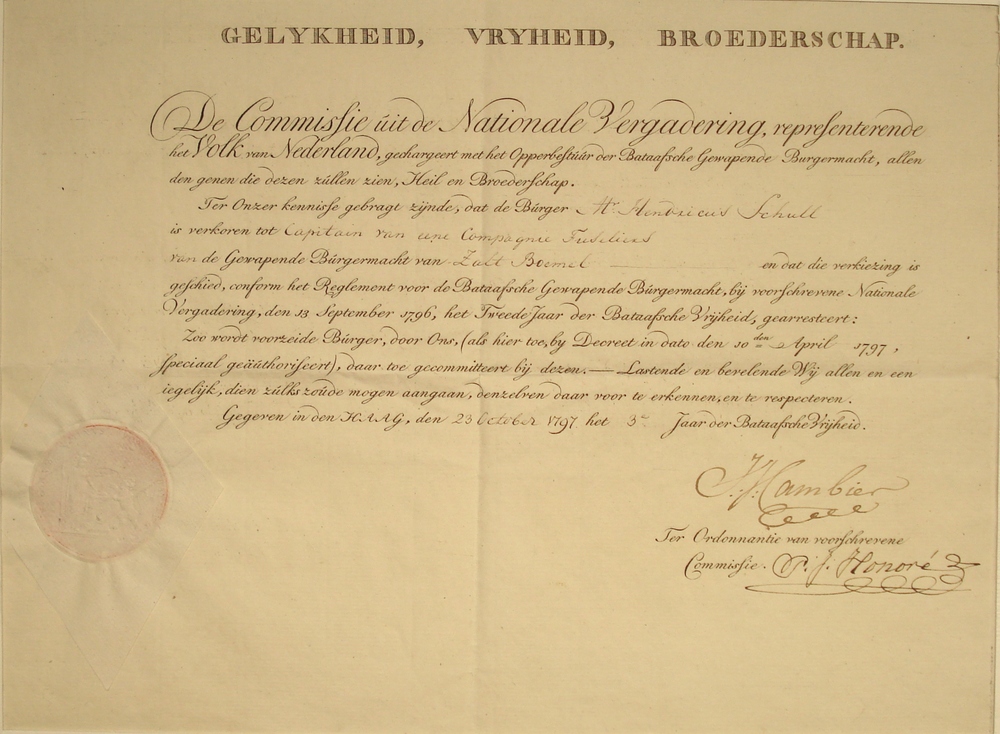 GELYKHEID, VRYHEID, BROEDERSCHAP.
De Commissie úit de Nationale Vergadering, representerende
het Volk van Nederland, gechargeert met het Opperbestúúr der Bataafsche Gewapende Burgermacht, allen
den genen die dezen zúllen zien, Heil en Broederschap.
Ter Onzer kennisse gebragt zijnde, dat de Búrger Mr. Hendricus Schull
is verkoren tot Capitain van eene Compagnie Fuseliers
van de Gewapende Búrgermacht van Zalt Boemel en dat die verkiezing is
geschied, conform het Reglement voor de Bataafsche Gewapende Búrgermacht, bij voorschrevene Nationale
Vergadering, den 13 September 1796, het Tweede Jaar der Bataafsche Vrijheid, gearresteert:
Zoo wordt voorzeide Búrger, door Ons, (als hier toe, by Decreet in dato den 10den April 1797,
speciaal geäúthoriseert), daar toe gecommitteert bij dezen. — Lastende en bevelende Wij allen en een
iegelijk, dien zúlks zoúde mogen aangaan, denzelven daar voor te erkennen, en te respecteren.
Gegeven in den HAAG, den 23 October 1797 het 3e Jaar der Bataafsche Vrijheid.
J. J. Cambier
Ter Ordonnantie van voorschrevene
Commissie. P. J. Honoré